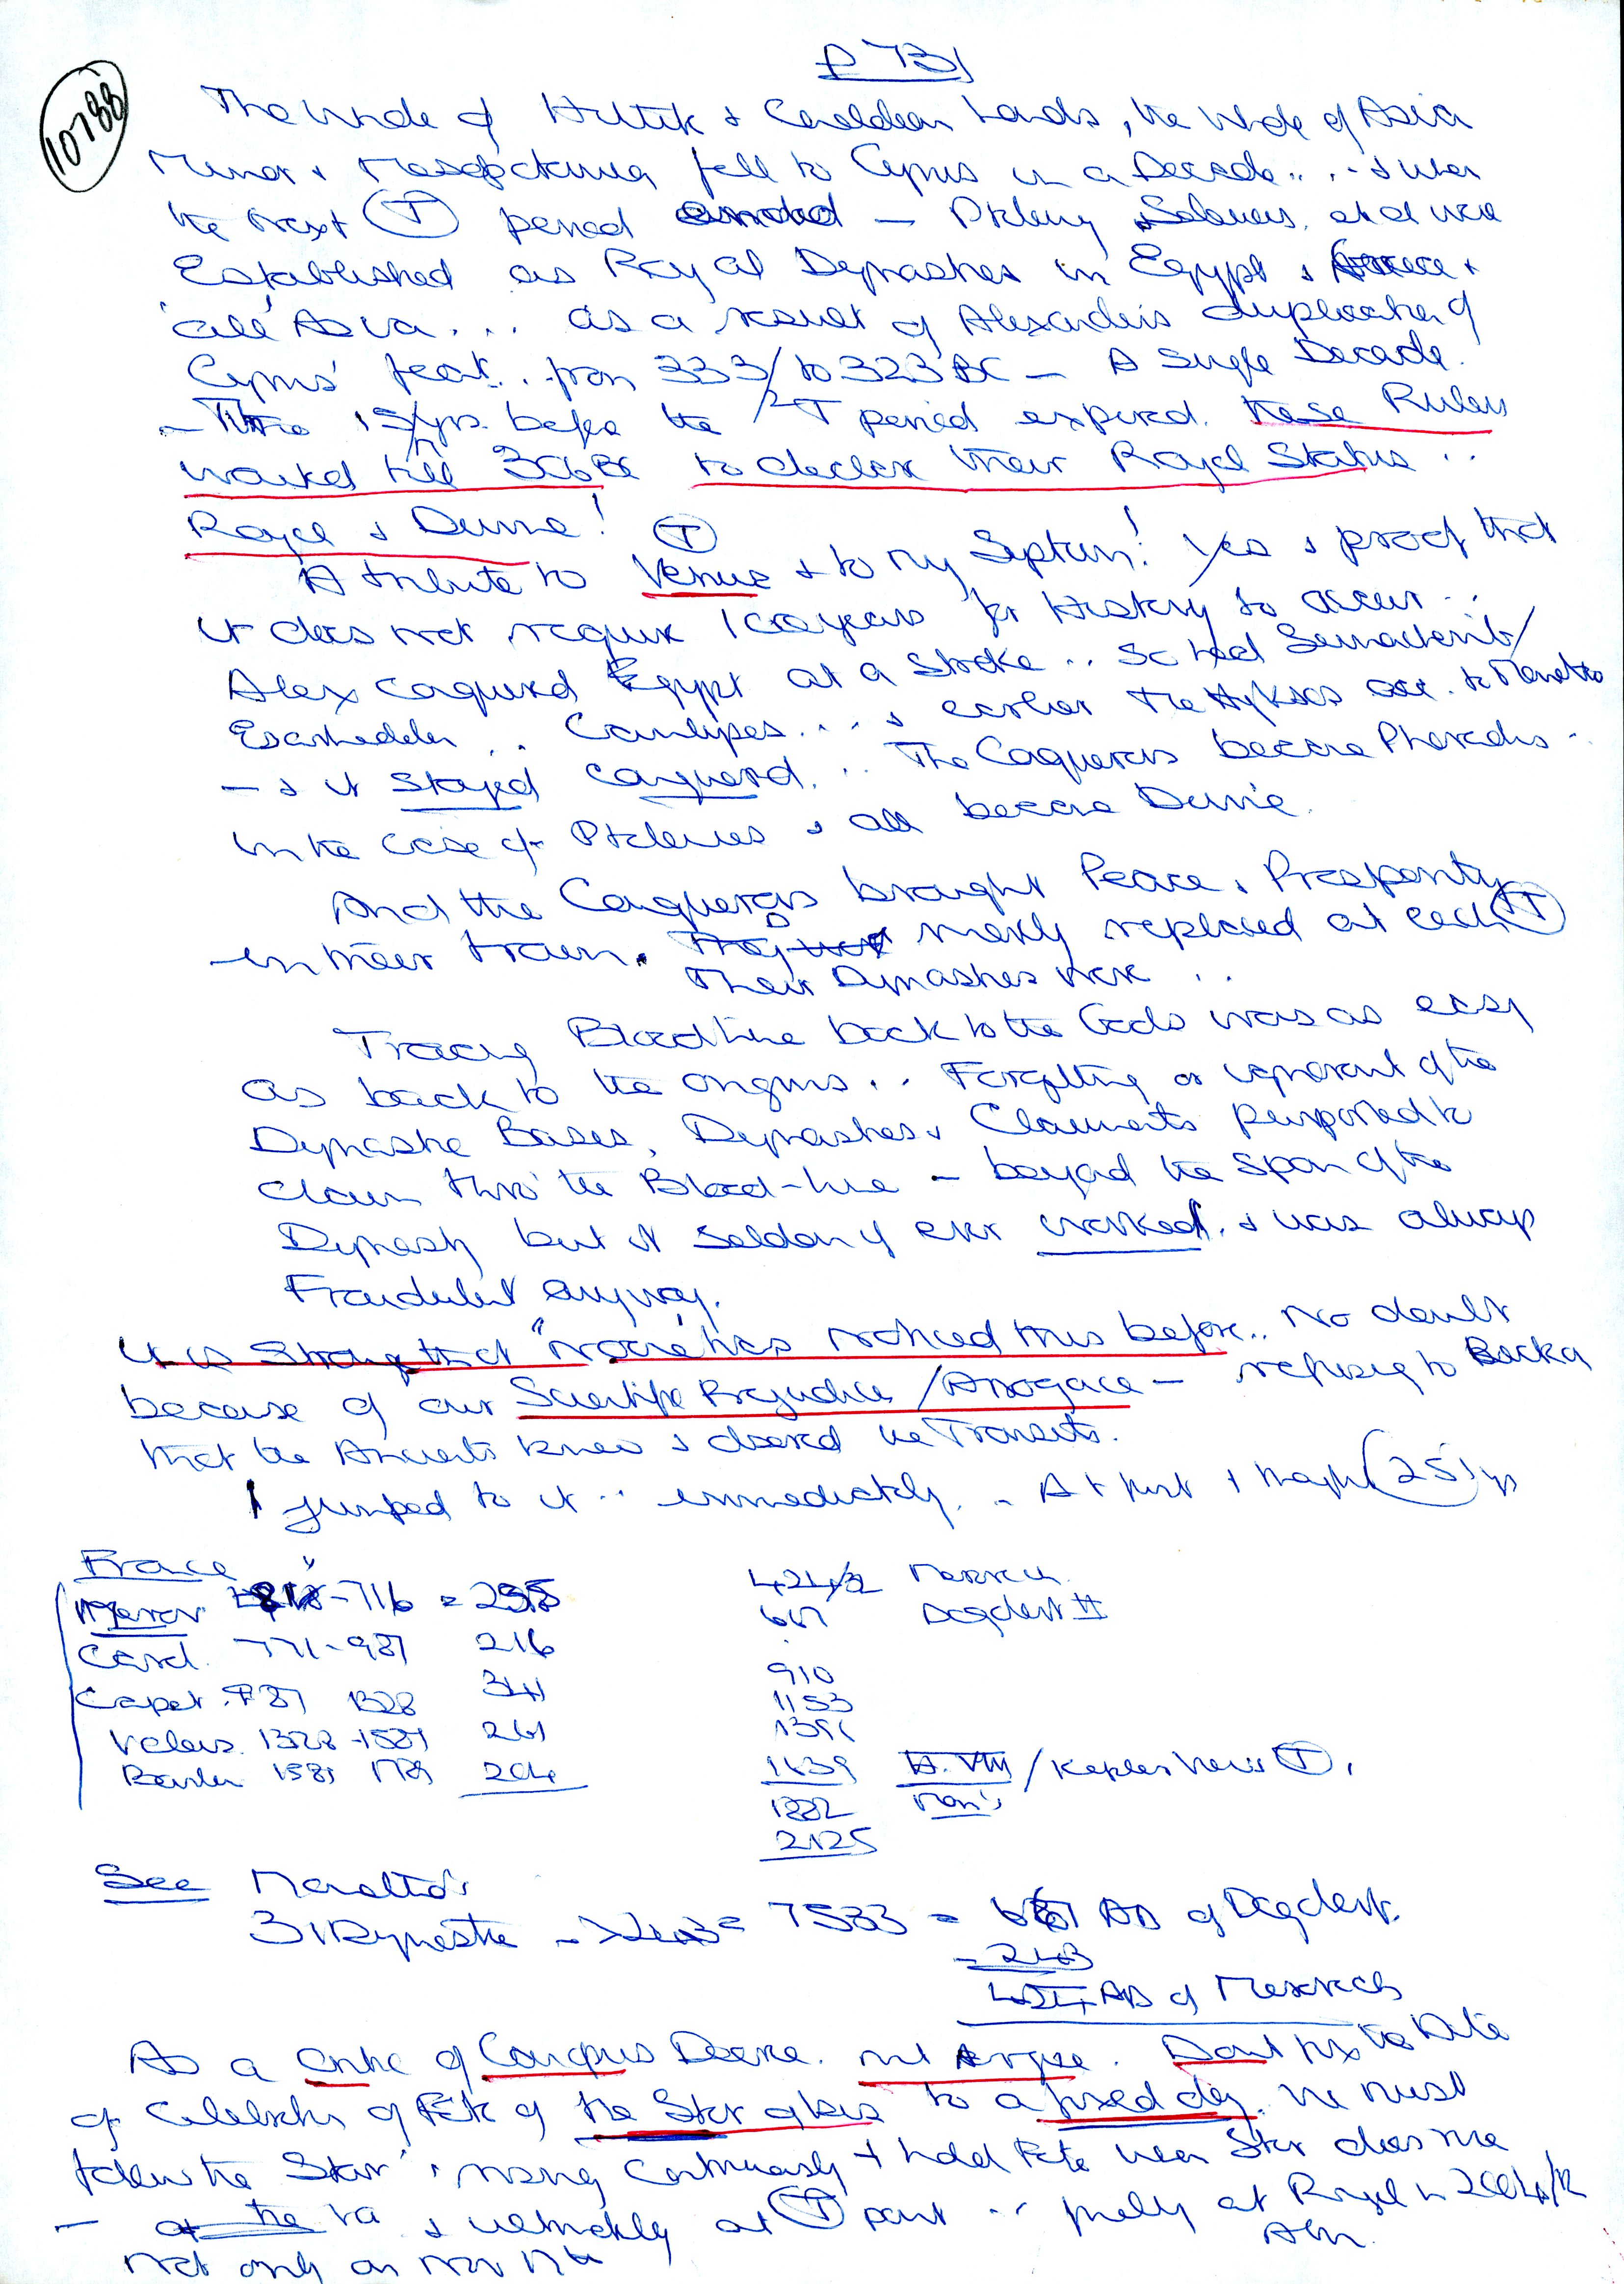 p 731
10788
The Whole of Hittite & Chaldean Lands, the whole of Asia
Minor & Mesopotamia fell to Cyrus in a Decade.. .. & when
the next (T) period ended — Ptolemy, Seleucus, et al were
Established as Royal Dynasties in Egypt & Greece +
'all' Asia... as a result of Alexander's duplication of
Cyrus' feat.. from 333/2 to 323 BC — A Single Decade.
15 yrs. before the T period expired. These Rulers
waited till 306 BC to declare their Royal Status ..
Royal & Divine!
A tribute to Venus (T) & to my Septum! Yes & proof that
it does not require 1000 years for History to occur ..
Alex conquered Egypt at a Stroke .. So had Sennacherib/
Esarhaddon .. Cambyses... & earlier the Hyksos acc. to Manetho
— & it stayed conquered... The Conquerors became Pharaohs ..
in the case of Ptolemies & all became Divine.
And the Conquerors brought Peace & Prosperity
in their train. They were merely replaced at each (T)
Their Dynasties were ..
Tracing Bloodline back to the Gods was as easy
as back to the origins.. Forgetting or ignorant of the
Dynastic Bases, Dynasties & Claimants purported to
claim thro' the Blood-line — beyond the span of the
Dynasty but it seldom if ever worked, & was always
Fraudulent anyway.
It is Strange that "no one" has noticed this before.. No doubt
because of our Scientific Prejudice/Arrogance — refusing to
that the Ancients knew & observed the Transits.
I jumped to it .. immediately. .. At first I thought (251) yrs
France
Merov. -716 =
424/3 Merovech
667 Dagobert II
Carol. 771-987 216
910
Capet. 987 1328 341
1153
Valois. 1328-1589 261
1396
Bourbon 1589 1789 204
1639 H. VIII / Kepler Venus (T).
1882
2125
See Manetho's
31 Dynasties - × 243 = 7533 = 667 AD of Dagobert.
- 243
424 AD of Merovech
As a Critic of Canopus Decree. mt argue. Dont fix the Date
of Celebration of Fete of the Star of Isis to a fixed day. We must
follow the Star's rising Continuously & hold Fete when Star does rise
— & ultimately at (T) point .. finally at in 2004/12
Alm.
not only on